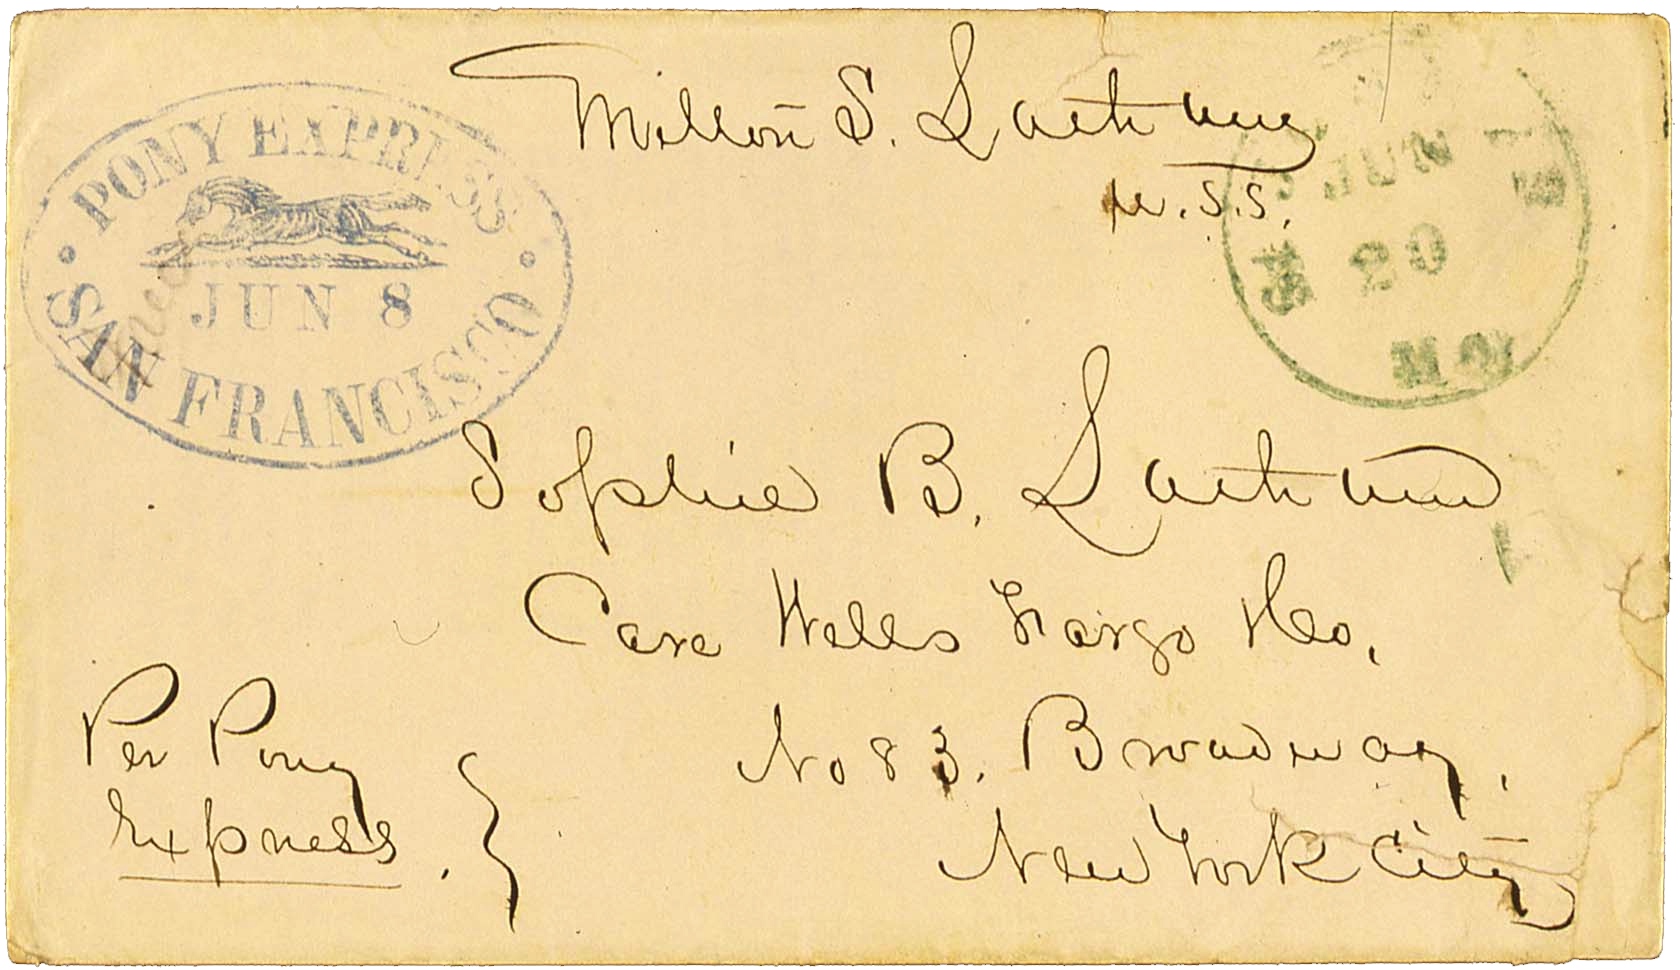 Milton S. Latham
U.S.S.
PONY EXPRESS
JUN 8
SAN FRANCISCO
Free
JUN
20
MO
Sophie B. Latham
Care Wells Fargo &Co,
No 83. Broadway,
New York City
Per Pony
Express.